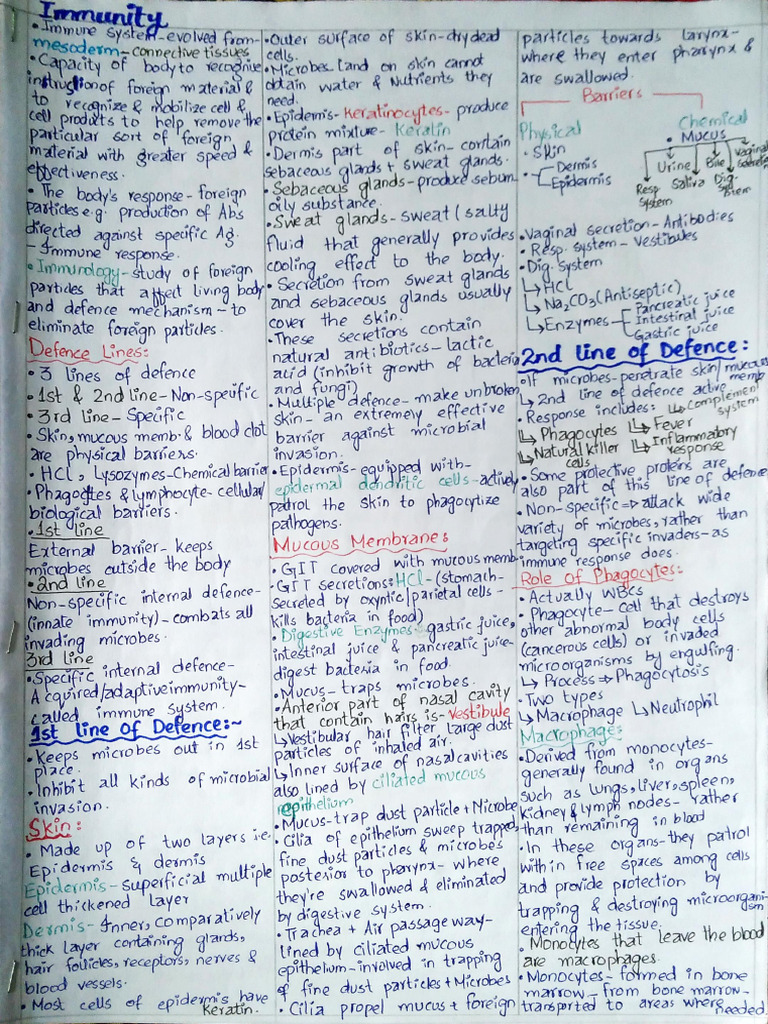 Immunity
• Immune system-evolved from-
mesoderm-connective tissues
• Capacity of body to recognise
instruction of foreign material &
to recognize & mobilize cell &
cell products to help remove the
particular sort of foreign
material with greater speed &
effectiveness.
• The body's response-foreign
particles e.g. production of Abs
directed against specific Ag.
- Immune response.
• Immurology-study of foreign
particles that affect living body
and defence mechanism-to
eliminate foreign particles.
Defence Lines:
• 3 lines of defence
• 1st & 2nd line-Non-speific
• 3rd line-Specific
• Skin, mucous memb. & blood clot
are physical barriers.
• HCl, Lysozymes-Chemical barrier
• Phagocytes & lymphocyte-cellular/
biological barriers.
• 1st line
External barrier-keeps
microbes outside the body
• 2nd line
Non-specific internal defence-
(innate immunity)-combats all
invading microbes.
3rd line
• Specific internal defence-
Acquired/adaptive immunity-
called immune system.
1st line of Defence:~
• Keeps microbes out in 1st
place.
• Inhibit all kinds of microbial
invasion.
Skin:
• Made up of two layers i.e.
Epidermis & dermis
Epidermis-Superficial multiple
cell thickened layer
Dermis-Inner, comparatively
thick layer containing glands,
hair follicles, receptors, nerves &
blood vessels.
• Most cells of epidermis have
keratin.
• Outer surface of skin-dry dead
cells.
• Microbes land on skin cannot
obtain water & Nutrients they
need.
• Epidermis-Keratinocytes-produce
protein mixture-Keratin
• Dermis part of skin-contain
sebaceous glands + sweat glands.
• Sebaceous glands-produce sebum
oily substance.
• Sweat glands-sweat (salty
fluid that generally provides
cooling effect to the body.
• Secretion from sweat glands
and sebaceous glands usually
cover the skin.
• These secretions contain
natural antibiotics-lactic
acid (inhibit growth of bacteria
and fungi)
• Multiple defence-make unbroken
skin-an extremely effective
barrier against microbial
invasion.
• Epidermis-equipped with-
epidermal dendritic cells-actively
patrol the skin to phagocytize
pathogens.
Mucous Membrane:
• GIT covered with mucous memb.
• GIT secretions: HCl-(stomach-
secreted by oxyntic/parietal cells-
kills bacteria in food)
• Digestive Enzymes-gastric juice,
intestinal juice & pancreatic juice-
digest bacteria in food.
• Mucus-traps microbes.
• Anterior part of nasal cavity
that contain hairs is-Vestibule
↳ Vestibular hair filter large dust
particles of inhaled air.
↳ Inner surface of nasal cavities
also lined by ciliated mucous
epithelium
• Mucus-trap dust particle + Microbe
• Cilia of epithelium sweep trapped
fine dust particles & microbes
posterior to pharynx-where
they're swallowed & eliminated
by digestive system.
• Trachea + Air passage way-
lined by ciliated mucous
epithelium-involved in trapping
of fine dust particles + Microbes
• Cilia propel mucus + foreign
particles towards larynx-
where they enter pharynx &
are swallowed.
Barriers
Physical
• Skin
• Dermis
Epidermis
Chemical
• Mucus
Resp. System
Urine
Saliva
Bile
Dig. System
Vaginal Secretion
• Vaginal secretion-Antibodies
• Resp. system-Vestibules
• Dig. System
↳ HCl
↳ Na2CO3 (Antiseptic)
↳ Enzymes - Pancreatic juice
Intestinal juice
Gastric juice
2nd line of Defence:
• If microbes-penetrate skin/mucous memb
↳ 2nd line of defence active
• Response includes: ↳ Complement system
↳ Phagocytes ↳ Fever
↳ Natural killer cells ↳ Inflammatory response
• Some protective proteins are
also part of this line of defence
• Non-specific ⇒ attack wide
variety of microbes, rather than
targeting specific invaders-as
immune response does.
Role of Phagocytes:
• Actually WBCs
• Phagocyte-cell that destroys
other abnormal body cells
(cancerous cells) or invaded
microorganisms by engulfing.
↳ Process ⇒ Phagocytosis
• Two types
↳ Macrophage ↳ Neutrophil
Macrophage:
• Derived from monocytes-
generally found in organs
such as lungs, liver, spleen,
kidney & lymph nodes-rather
than remaining in blood
• In these organs-they patrol
within free spaces among cells
and provide protection by
trapping & destroying microorganism
entering the tissue.
• Monocytes that leave the blood
are macrophages.
• Monocytes-formed in bone
marrow-from bone marrow-
transported to areas where needed.